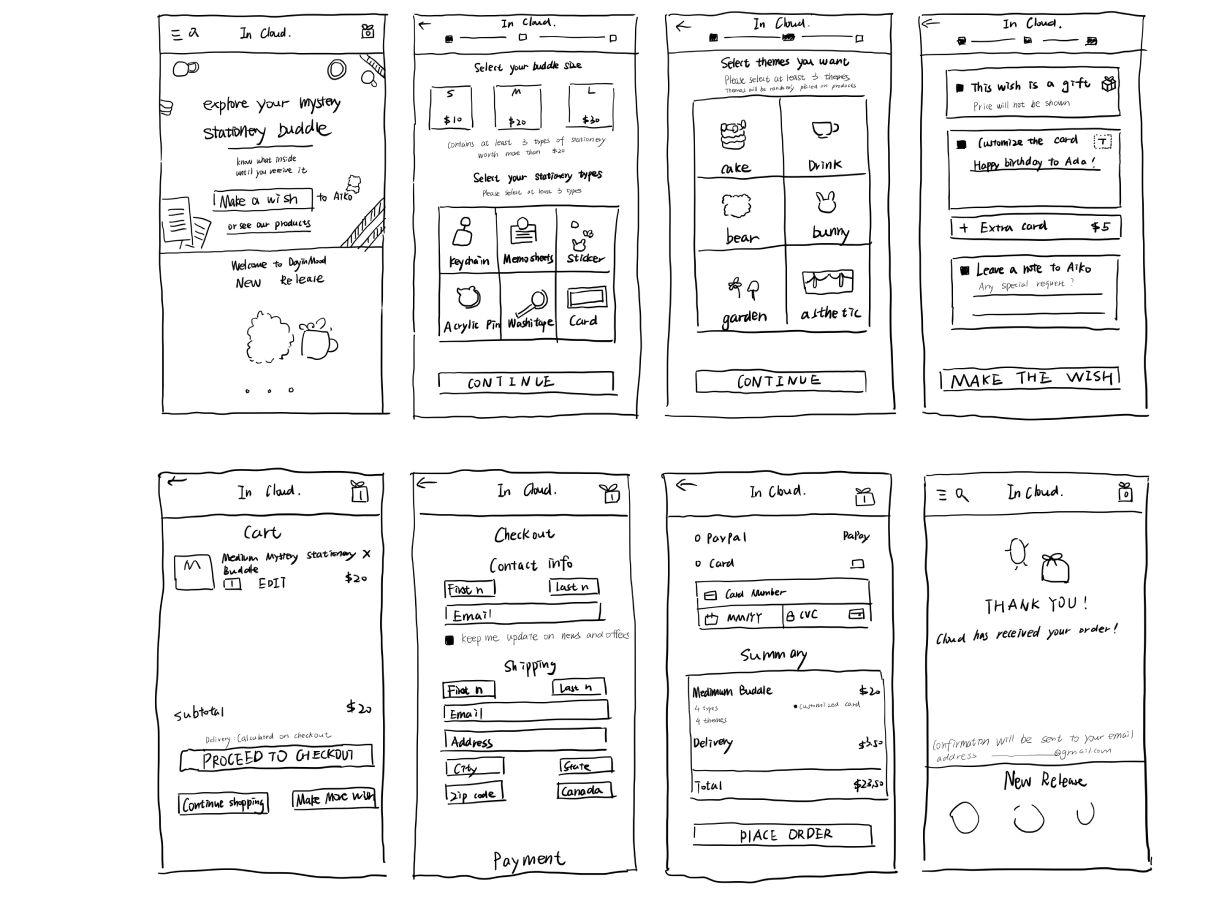 In Cloud.
0
explore your mystery
stationery buddle
know what inside
until you receive it
Make a wish to Aiko
or see our products
Welcome to DayinMood
New Release
In Cloud.
Select your buddle size
S M L
$10 $20 $30
Contains at least 3 types of stationery
worth more than $20
Select your stationery types
Please select at least 3 types
Keychain Memo sheets Sticker
Acrylic Pin Washi tape Card
CONTINUE
In Cloud.
Select themes you want
Please select at least 3 themes
Themes will be randomly placed on products
cake Drink
bear bunny
garden asthetic
CONTINUE
In Cloud.
This wish is a gift
Price will not be shown
Customize the card T
Happy birthday to Ada!
+ Extra card $5
Leave a note to Aiko
Any special request?
MAKE THE WISH
In Cloud.
1
Cart
M
Medium Mystery Stationery X
Buddle
1 EDIT $20
subtotal $20
Delivery: Calculated on checkout
PROCEED TO CHECKOUT
Continue shopping Make More wish
In Cloud.
1
Checkout
Contact info
First n Last n
Email
keep me update on news and offers
Shipping
First n Last n
Email
Address
City State
Zip code Canada
Payment
In Cloud.
1
PayPal PaPay
Card
Card Number
MM/YY CVC
Summary
Medimum Buddle $20
4 types customized card
4 themes
Delivery $3.50
Total $23.50
PLACE ORDER
In Cloud.
0
THANK YOU!
Cloud has received your order!
Confirmation will be sent to your email
address @gmail.com
New Release